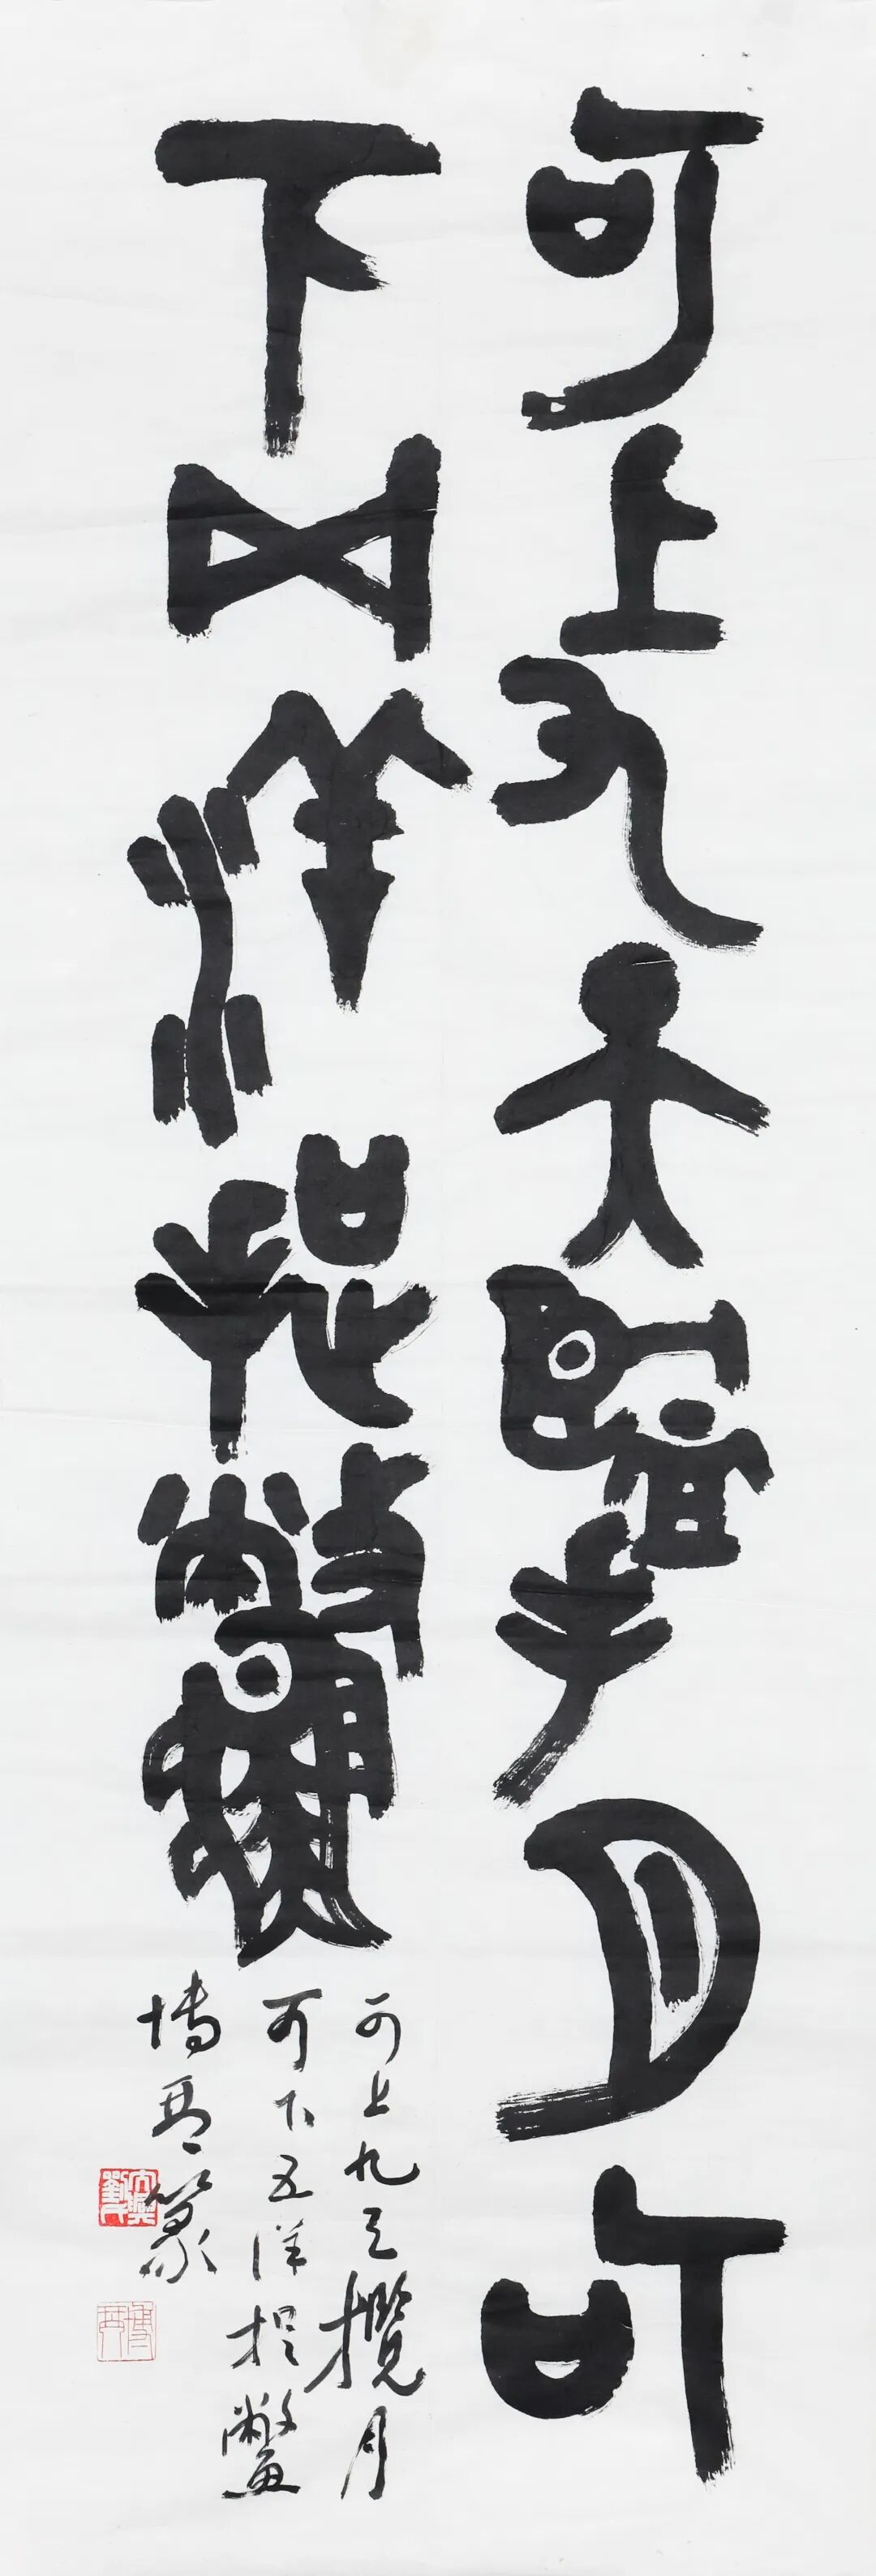 可上九天攬月可
下五洋捉鱉
可上九天攬月
可下五洋捉鱉
博琴篆
博琴